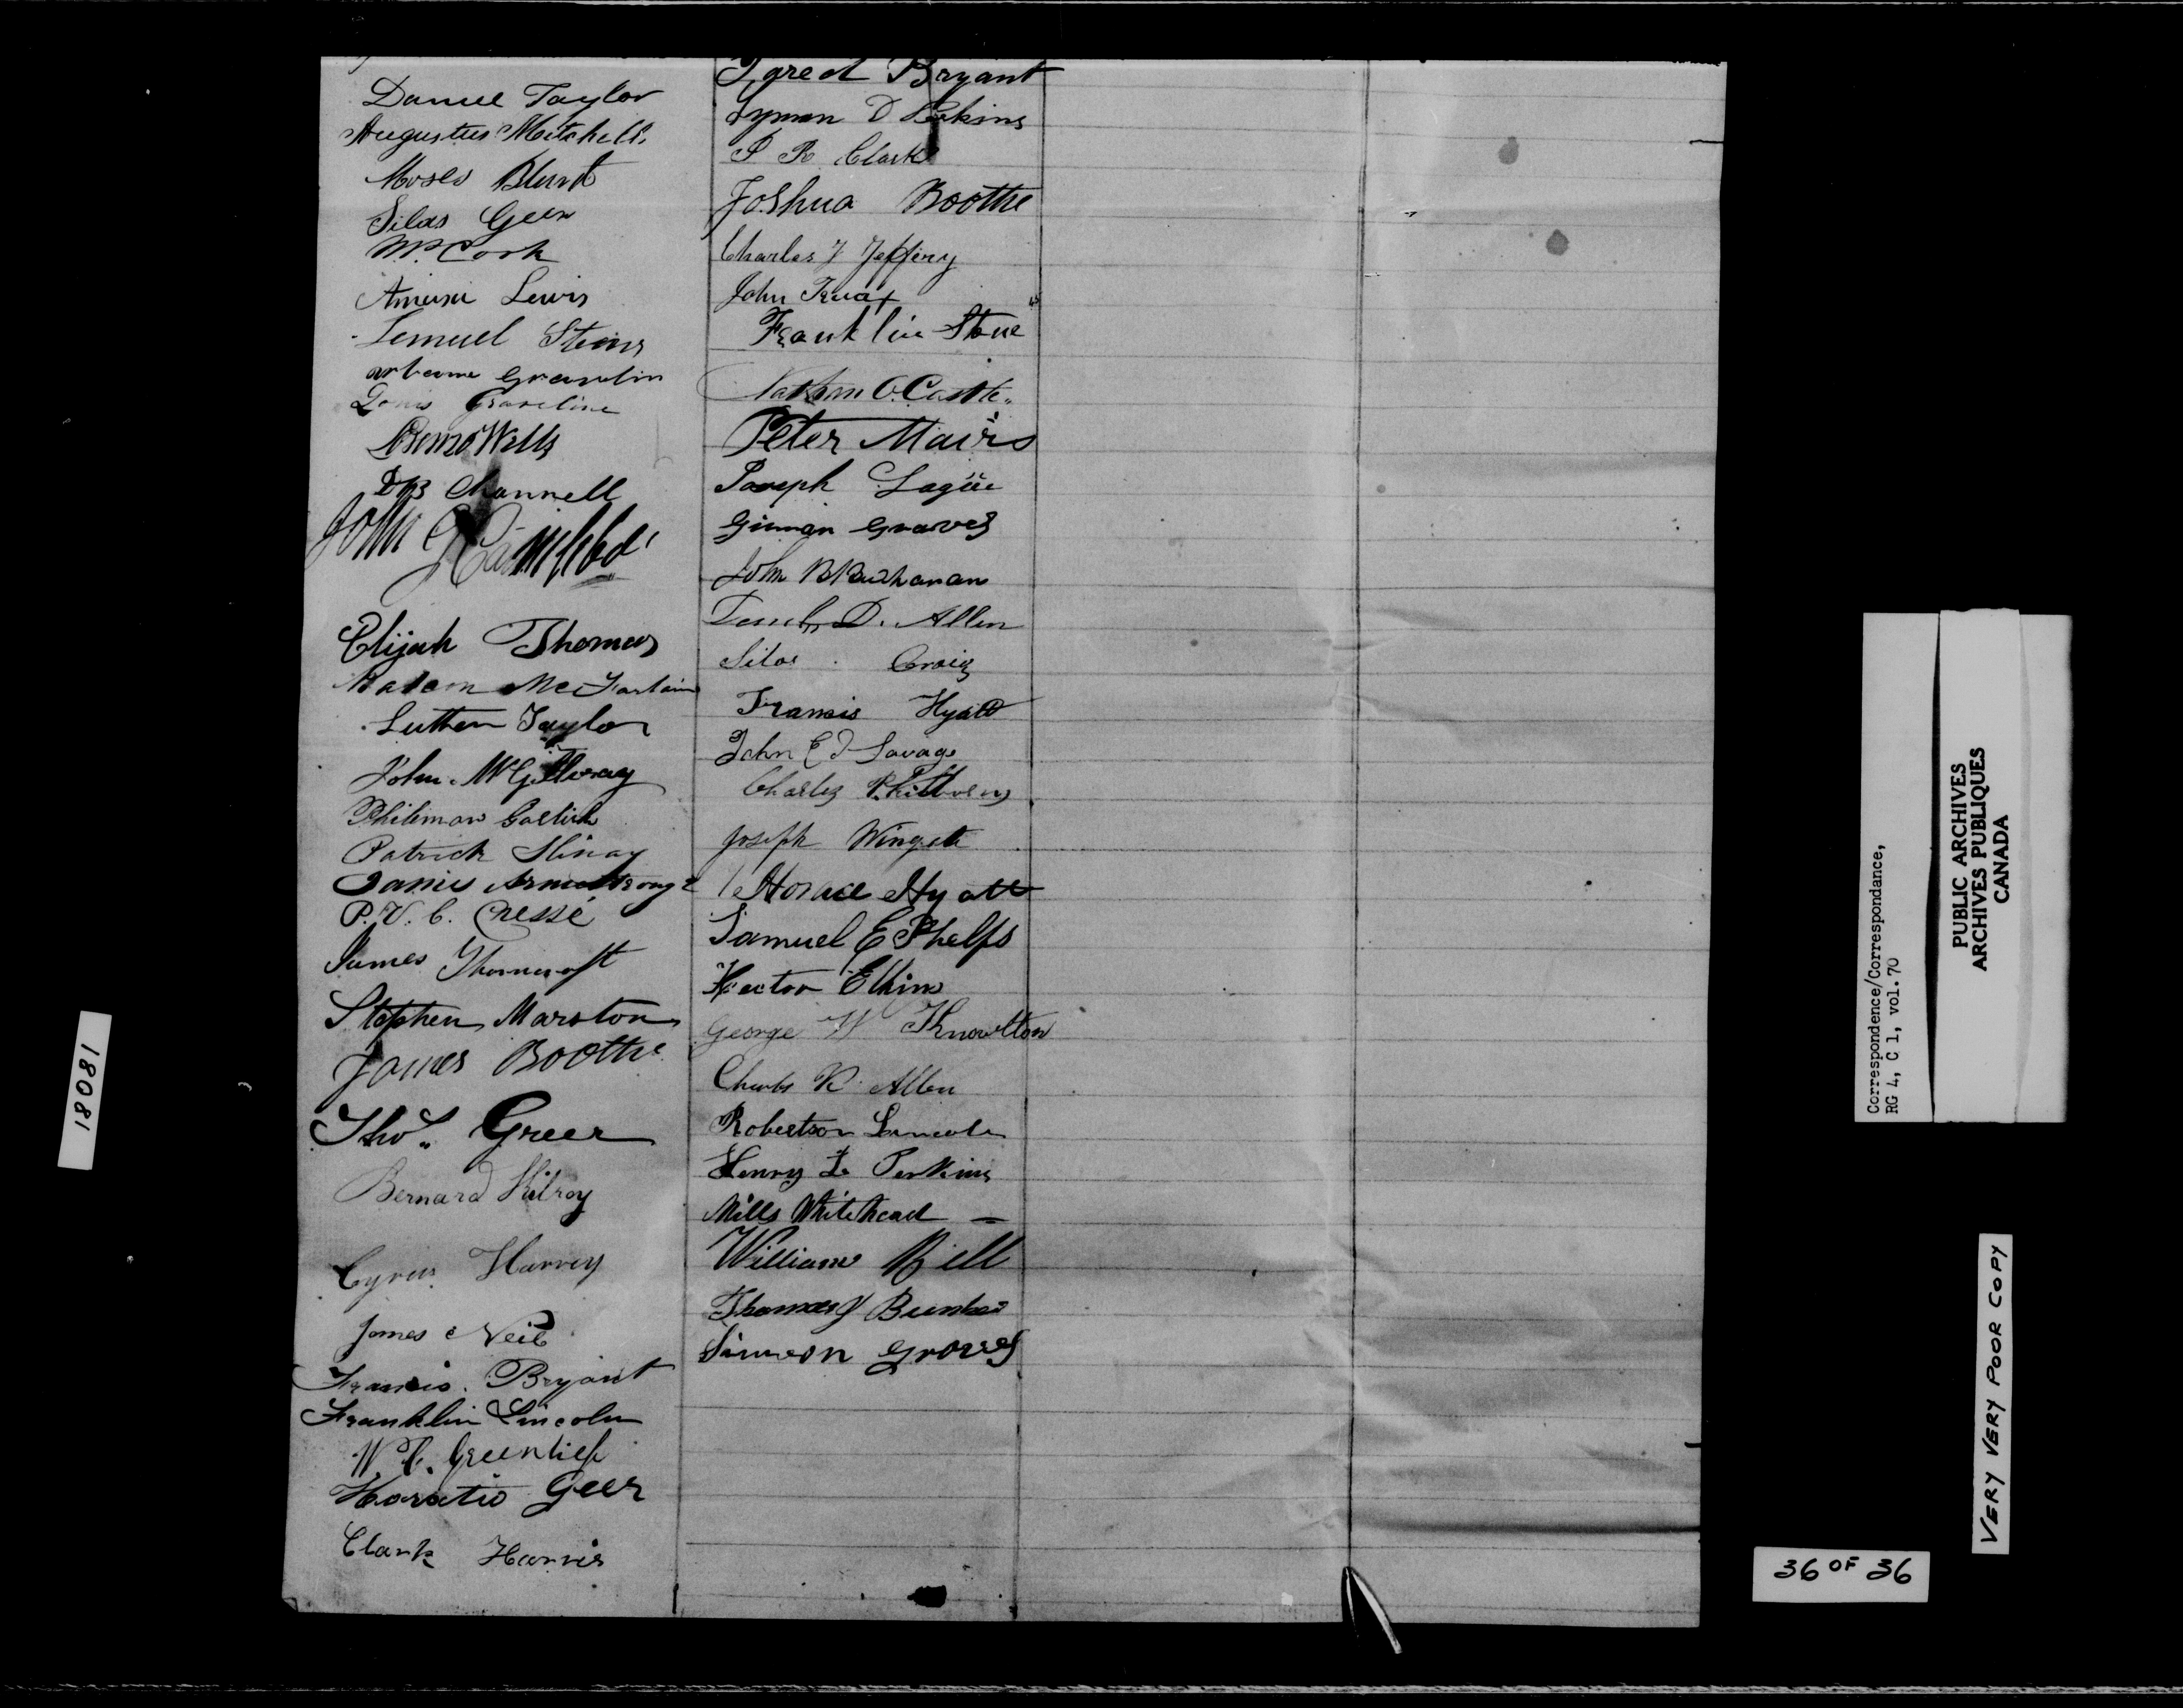 Daniel Taylor
Augustus Mitchell
Moses Blunt
Silas Geer
Wm. Cook
Amasa Lewis
Lemuel Stevens
Louis Graveline
Wells
Channell
John Campbell
Elijah Thomas
McFarlain
Luther Taylor
John McGillvray
Philiman Garlick
Patrick
James Armstrong
P. V. C. Cressé
James Thorncroft
Stephen Marston
James Boothe
Thos. Greer
Bernard Kilroy
Cyrus Harvey
James Neil
Francis Bryant
Franklin Lincoln
W C. Greenlief
Horatio Geer
Clark Harvis
Jared Bryant
Lyman D Perkins
P R Clark
Joshua Boothe
Charles F Jeffery
John Truax
Franklin Stone
Nathan O. Castle
Peter Mairs
Joseph Lagüe
Gilman Graves
John B Buchanan
D. Allen
Silas Craig
Francis Hyatt
John E Savage
Charles
Joseph Wingate
Horace Hyatt
Samuel E Phelps
Hector Elkins
George W Knowlton
Charles R. Allen
Robertson Lincoln
Henry L Perkins
Mills Whitehead
William Bell
Thomas Bunker
Simeon Groves
18081
Correspondence/Correspondance,
RG 4, C 1, vol. 70
PUBLIC ARCHIVES
ARCHIVES PUBLIQUES
CANADA
VERY VERY POOR COPY
36 OF 36